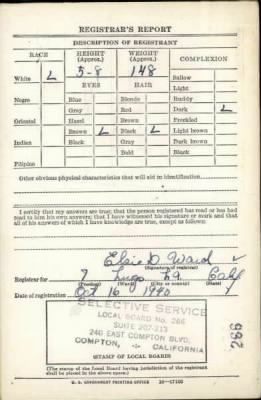 REGISTRAR'S REPORT
DESCRIPTION OF REGISTRANT
RACE
HEIGHT (Approx.)
WEIGHT (Approx.)
COMPLEXION
White
5-8
148
Sallow
EYES
HAIR
Light
Negro
Blue
Blonde
Ruddy
Gray
Red
Dark
Oriental
Hazel
Brown
Freckled
Brown
Black
Light brown
Indian
Black
Gray
Dark brown
Bald
Black
Filipino
Other obvious physical characteristics that will aid in identification
I certify that my answers are true; that the person registered has read or has had
read to him his own answers; that I have witnessed his signature or mark and that
all of his answers of which I have knowledge are true, except as follows:
Elsie D. Ward
(Signature of registrar)
Registrar for
7
Calif
(Precinct)
(Ward)
(City or county)
(State)
Date of registration
Oct 16 1940
SELECTIVE SERVICE
LOCAL BOARD No. 266
SUITE 207-213
240 EAST COMPTON BLVD,
COMPTON, -:- CALIFORNIA
STAMP OF LOCAL BOARD
(The stamp of the Local Board having jurisdiction of the registrant
shall be placed in the above space.)
U. S. GOVERNMENT PRINTING OFFICE 16-17105